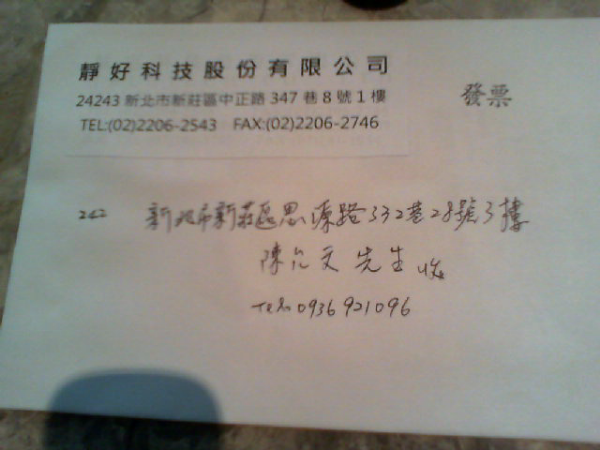 靜好科技股份有限公司
24243 新北市新莊區中正路 347 巷 8 號 1 樓
TEL:(02)2206-2543 FAX:(02)2206-2746
發票
242 新北市新莊區思源路332巷28號3樓
陳允文 先生 收
Tel:0936921096